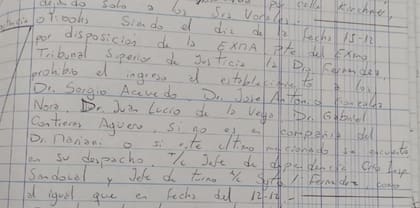 dejando solo a los Sres Vocales. por calle Kirchner,
07:00hs Siendo el día de la fecha 15-12
por disposición de la EXMA pte del EXmo
Tribunal Superior de Justicia la Dra. Fernandez,
prohibio el ingreso al establecimiento a los
Dr. Sergio Acevedo, Dr. Jose Antonio Gonzalez
Nora, Dr. Juan Lucio de la Vega, Dr. Gabriel
Contreras Agüero. Si go es en compañia del
Dr. Mariani o si este ultimo mencionado se encuentra
en su despacho. T/C Jefe de dependencia Crio Insp.
Sandoval y Jefe de turno S/C Sgto 1° Fernandez, como
al igual que en fecha del 12-12.